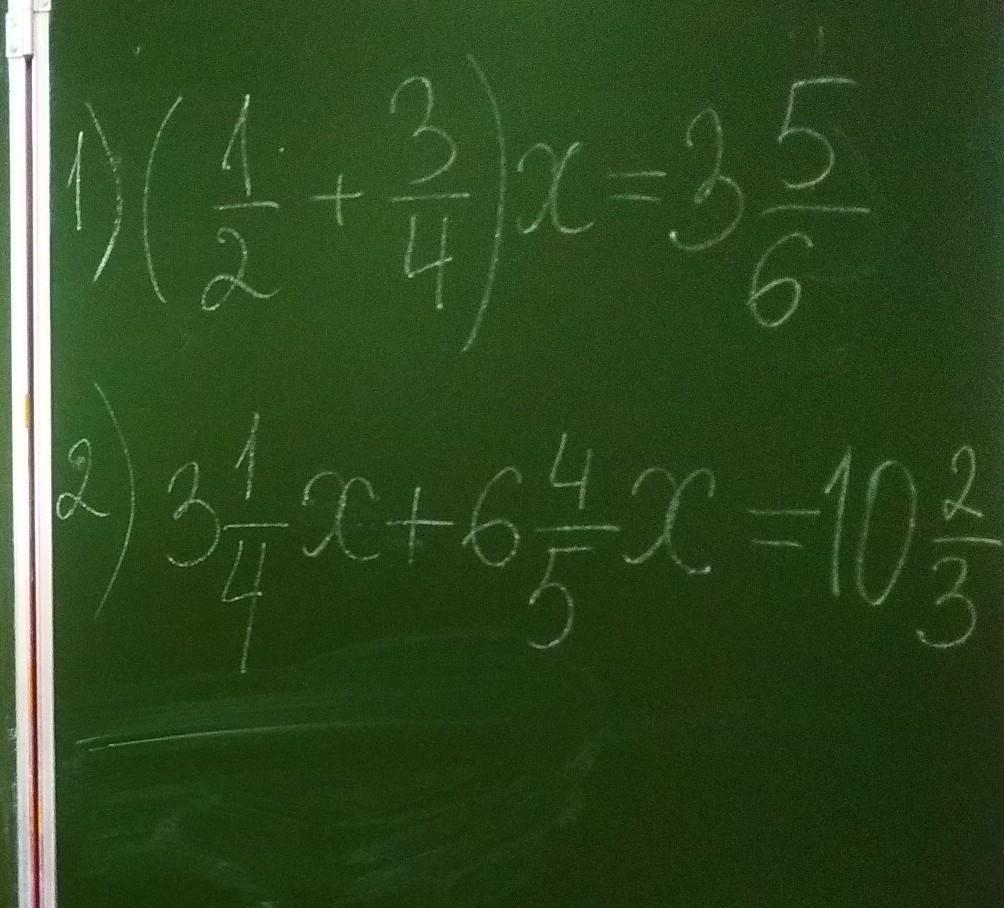 1) (1/2 + 3/4) x = 3 5/6
2) 3 1/4 x + 6 4/5 x = 10 2/3